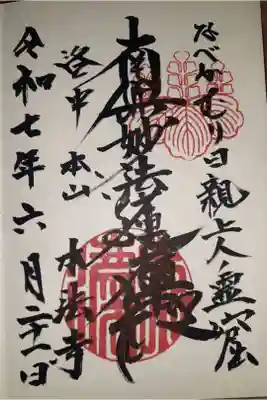 なべかむり日親上人霊窟
南無妙法蓮華経
洛中 本山 本法寺
令和七年六月二十一日